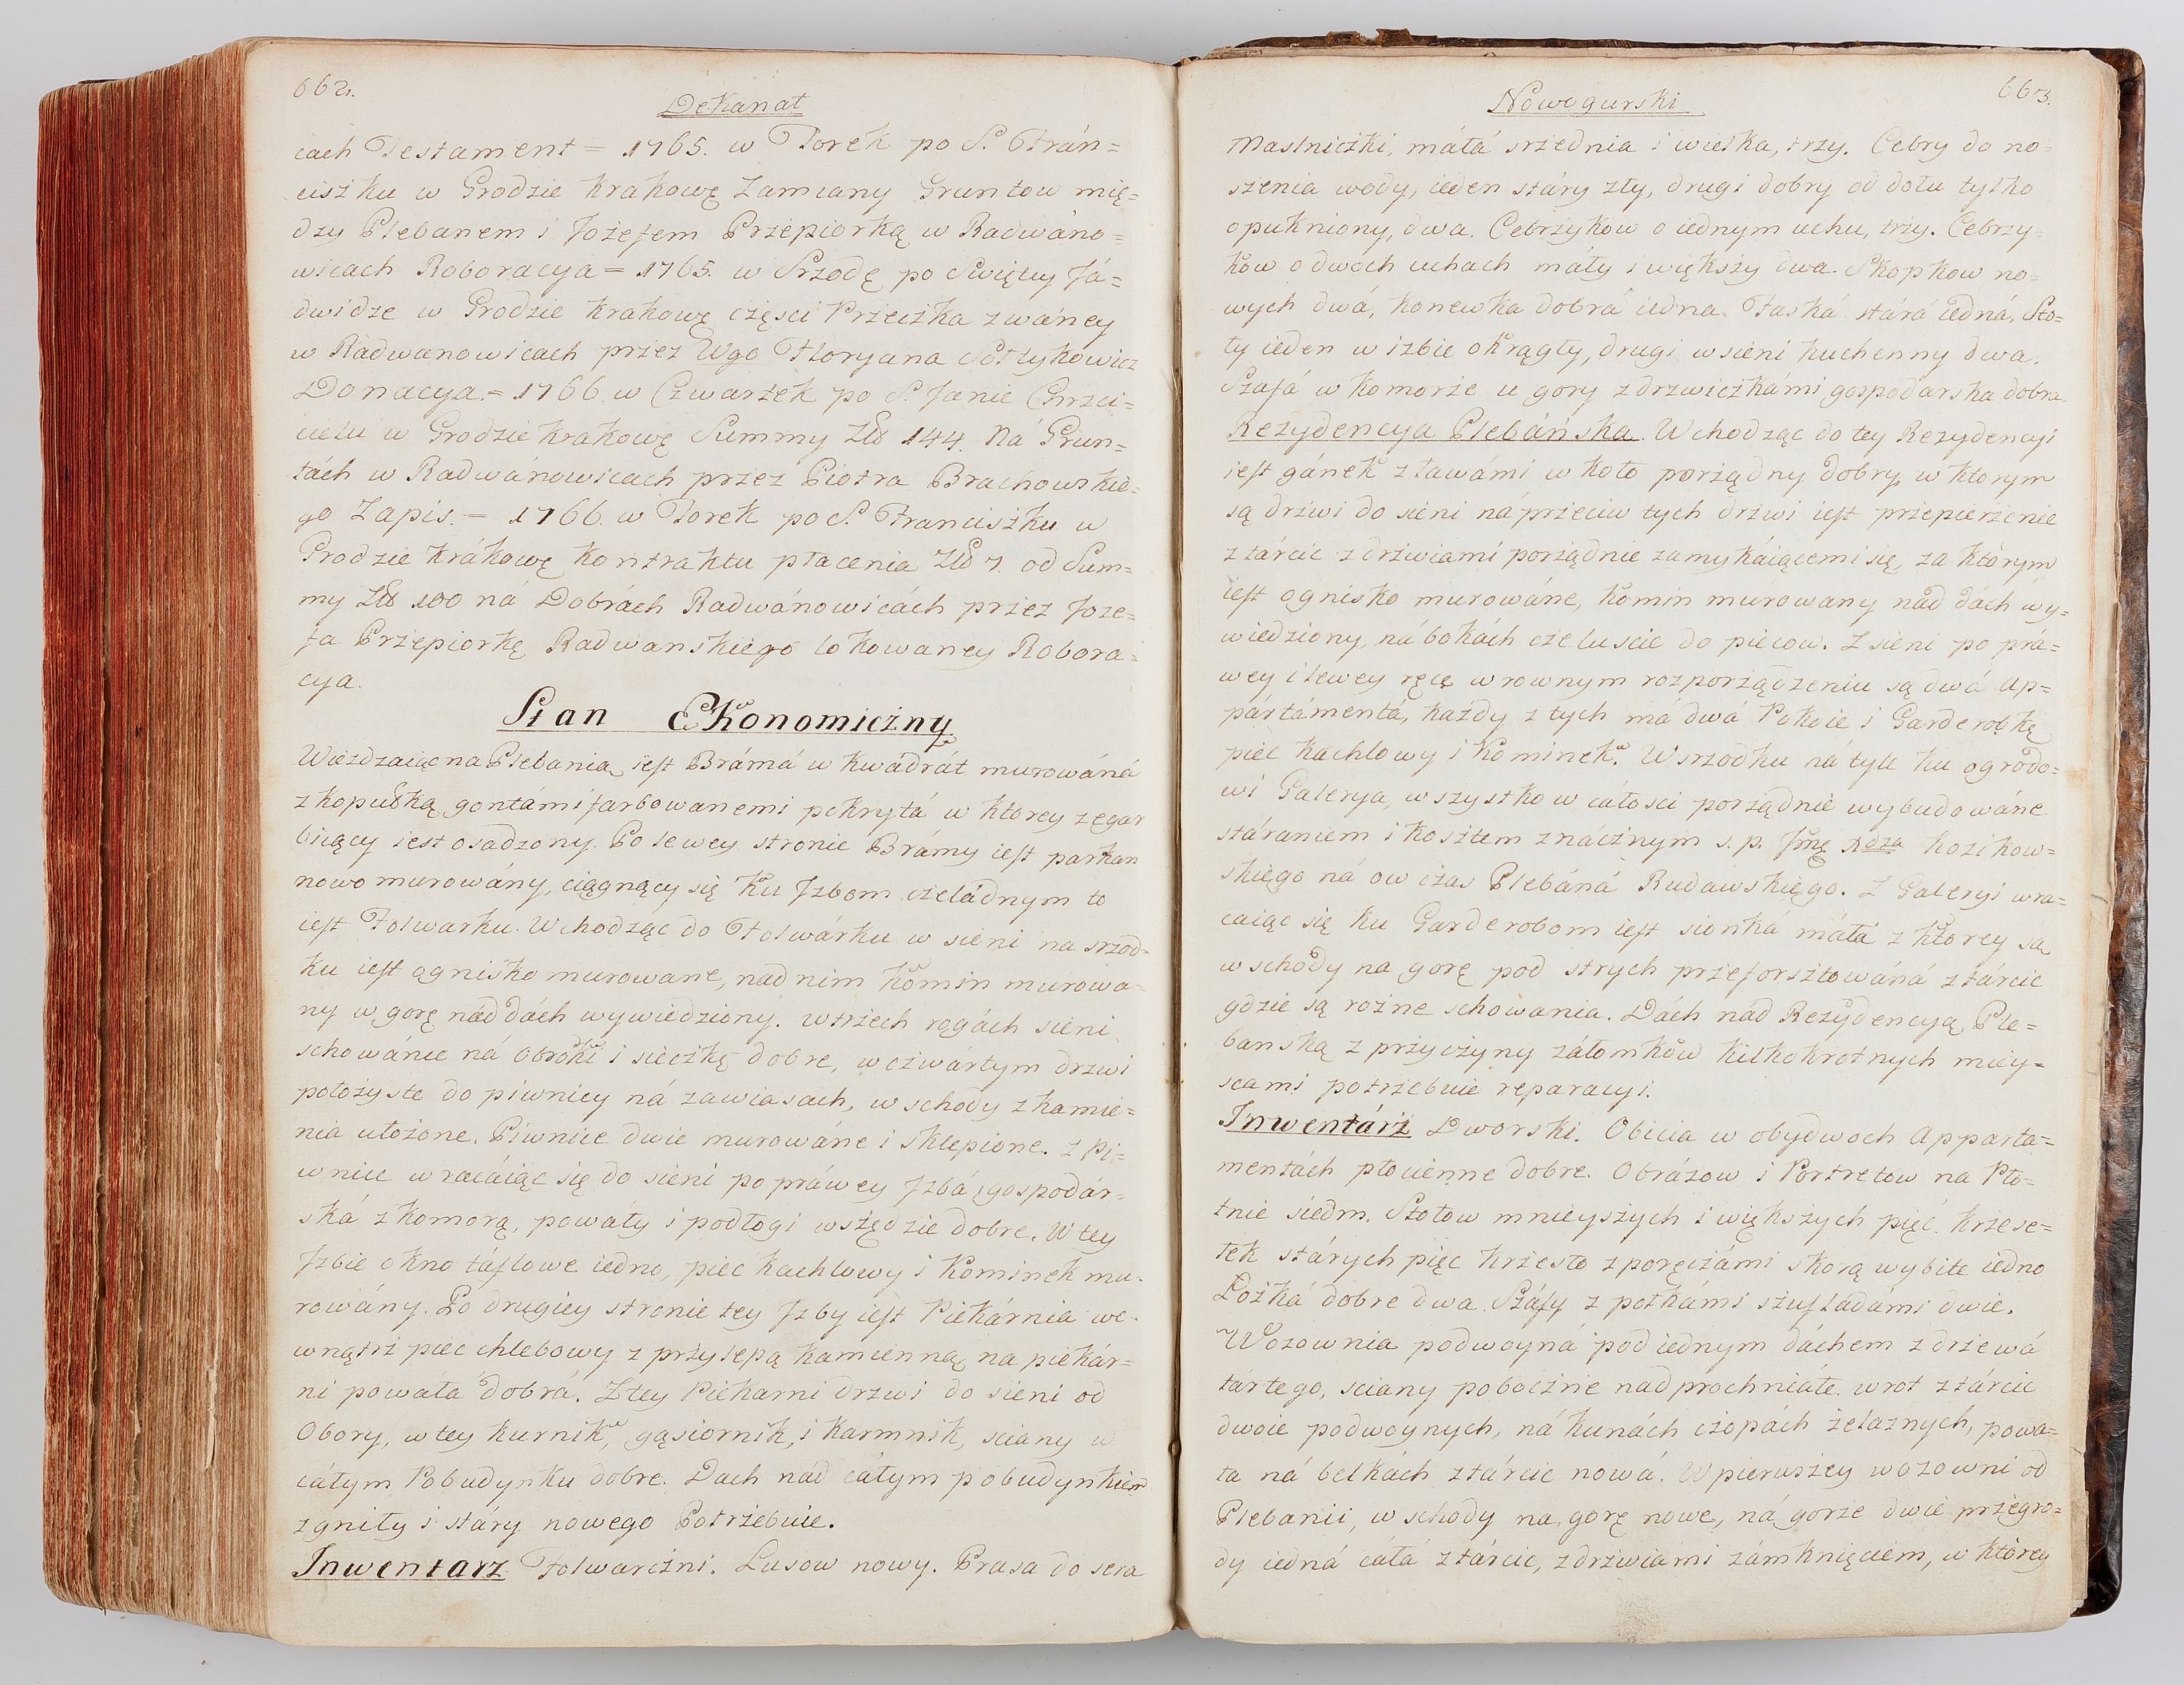 662.
Dekanat
cach Testament = 1765. w Torek po S. Frán=
ciszku w Grodzie Krakowę Zamiany Gruntow mię=
dzy Plebanem i Jozefem Przepiorką w Radwáno=
wicach Roboracya = 1765. w Srzodę po Swięty Já=
dwidze w Grodzie Krakowę częsci Przeczka zwáney
w Radwanowicach przez Wgo Floryana Sołtykowicz
Donacya. = 1766. w Czwartek po S. Janie Chrzci=
cielu w Grodzie Krakowę Summy Zł 144. Ná Grun=
tách w Radwánowicach przez Piotra Bráchowskie=
go Zapis. = 1766. w Torek po S. Franciszku w
Grodzie Krákowę Kontraktu płacenia Zł 7. od Sum=
my Zł 100 ná Dobrách Radwánowicách przez Joze=
fa Przepiorkę Radwanskiego lokowaney Robora=
cya.
Stan Ekonomiczny
Wieżdzaiąc na Plebanią iest Brámá w kwádrát murowáná
z kopułką gontámi farbowanemi pokrytá w ktorey zegar
biiący iest osadzony. Po lewey stronie Brámy iest parkan
nowo murowány, ciągnący się ku Jzbom czeládnym to
iest Folwarku. Wchodząc do Folwárku w sieni na srzod=
ku iest ognisko murowane, nad nim komin murowa=
ny w gorę nád dách wywiedziony. w trzech rogách sieni
schowánie ná obroki i sieczkę dobre, w czwártym drzwi
położyste do piwnicy ná zawiasach, wschody z kamie=
nia ułożone. Piwnice dwie murowáne i sklepione. z Pi=
wnic wracáiąc się do sieni po práwey Jzbá gospodár=
ská z komorą, powały i podłogi wszędzie dobre. W tey
Jzbie okno táflowe iedno, piec kachlowy i kominek mu=
rowány. Po drugiey stronie tey Jzby iest Piekárnia we=
wnątrz piec chlebowy z przyzepą kamienną na piekár=
ni powałá dobrá. Z tey Piekarni drzwi do sieni od
Obory, w tey kurnik, gąsiornik, i karmnik, sciany w
cáłym Pobudynku dobre. Dach nád cáłym pobudynkiem
zgniły i stáry nowego Potrzebuie.
Inwentarz Folwarczni. Lusow nowy. Prasa do sera
663.
Nowogurski
Maslniczki, máłá srzednia i wielka, trzy. Cebry do no=
szenia wody, ieden stáry zły, drugi dobry od dołu tylko
opukniony, dwa. Cebrzykow o iednym uchu, trzy. Cebrzy=
kow o dwoch uchach máły i większy dwa. Skopkow no=
wych dwá, konewka dobrá iedna. Faská stárá iedná. Sto=
ły ieden w izbie okrągły, drugi w sieni kuchenny dwa.
Szafá w komorze u gory z drzwiczkámi gospodarska dobra.
Rezydencya Plebáńska. Wchodząc do tey Rezydencyi
iest gánek z ławámi w koło porządny dobry, w ktorym
są drzwi do sieni náprzeciw tych drzwi iest przepierzenie
z tárcic z drzwiami porządnie zamykáiącemi się, za ktorym
iest ognisko murowáne, komin murowany nád dách wy=
wiedziony, ná bokách czeluscie do piecow. Z sieni po prá=
wey i lewey ręcę w rownym rozporządzeniu są dwá Ap=
pártámentá, każdy z tych má dwá Pokoie i Garderobkę
piec kachlowy i kominek. W srzodku ná tyle ku ogrodo=
wi Galerya, wszystko w cáłosci porządnie wybudowáne
stáraniem i kosztem znacznym s. p. Jmę Xdza Kozikow=
skiego ná ow czas Plebáná Rudawskiego. Z Galeryi wra=
caiąc się ku Garderobom iest sionká máłá z ktorey są
wschody na gorę pod strych przeforsztowáná z tárcic
gdzie są rozne schowania. Dách nád Rezydencyą Ple=
banską z przyczyny záłomkow kilkokrotnych miey=
scami potrzebuie reparacyi.
Inwentárz Dworski. Obicia w obydwoch Apparta=
mentách płocienne dobre. Obrázow i Portretow na Płó=
tnie siedm. Stołow mnieyszych i większych pięć. krzese=
łek stárych pięć krzesło z poręczámi skorą wybite iedno
Łożká dobre dwa. Száfy z połkámi szufladámi dwie.
Wozownia podwoyná pod iednym dáchem z drzewá
tártego, sciany poboczne nadprochniałe. wrot z tárcic
dwoie podwoynych, ná kunách czopách żelaznych, powa=
ła ná belkách z tárcic nowá. W pierwszey wozowni od
Plebanii, wschody na gorę nowe, ná gorze dwie przegro=
dy iedná cáłá z tárcic, z drzwiami zámknięciem, w ktorey